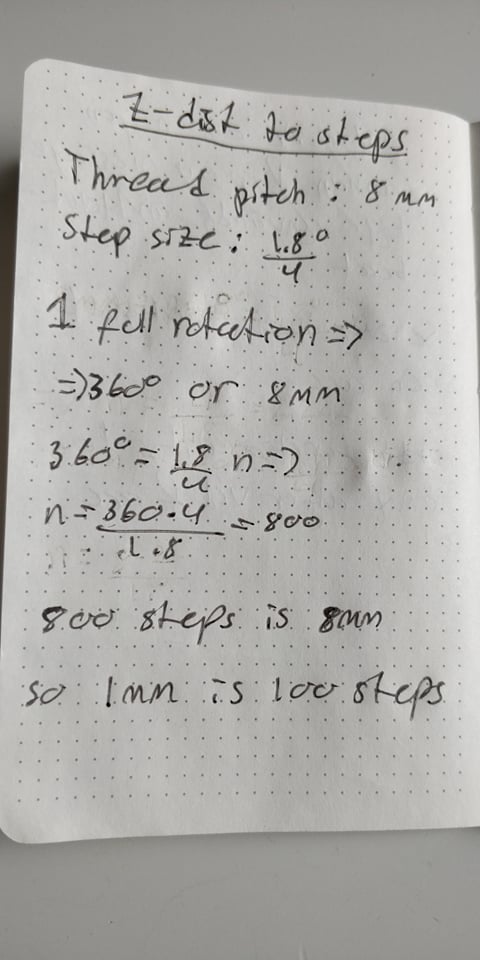 Z-dist to steps
Thread pitch : 8 mm
Step size : 1.8° / 4
1 full rotation =>
=> 360° or 8mm
360° = 1.8/4 n =>
n = 360·4 / 1.8 = 800
800 steps is 8mm
so 1mm is 100 steps